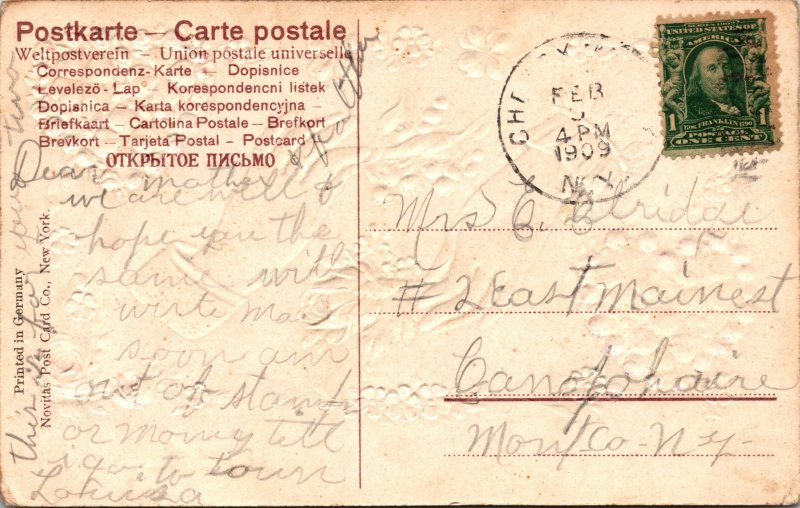 Postkarte — Carte postale
Weltpostverein — Union postale universelle
Correspondenz-Karte — Dopisnice
Levelezö-Lap — Korespondencni listek
Dopisnica — Karta korespondencyjna
Briefkaart — Cartolina Postale — Brefkort
Brevkort — Tarjeta Postal — Postcard
ОТКРЫТОЕ ПИСЬМО
Dear mother
we are well &
hope you the
same will
write
soon am
out of stamps
or money till
i go to town
Louisa
this is for you two
& father
Printed in Germany
Novitas Post Card Co., New York.
FEB
4 PM
1909
N.Y.
SERIES 1902
UNITED STATES OF
AMERICA
1 1
FRANKLIN
POSTAGE
ONE CENT
Mrs C. Elridge
# 2 East Main est
Canajoharie
Mont Co - N.Y -